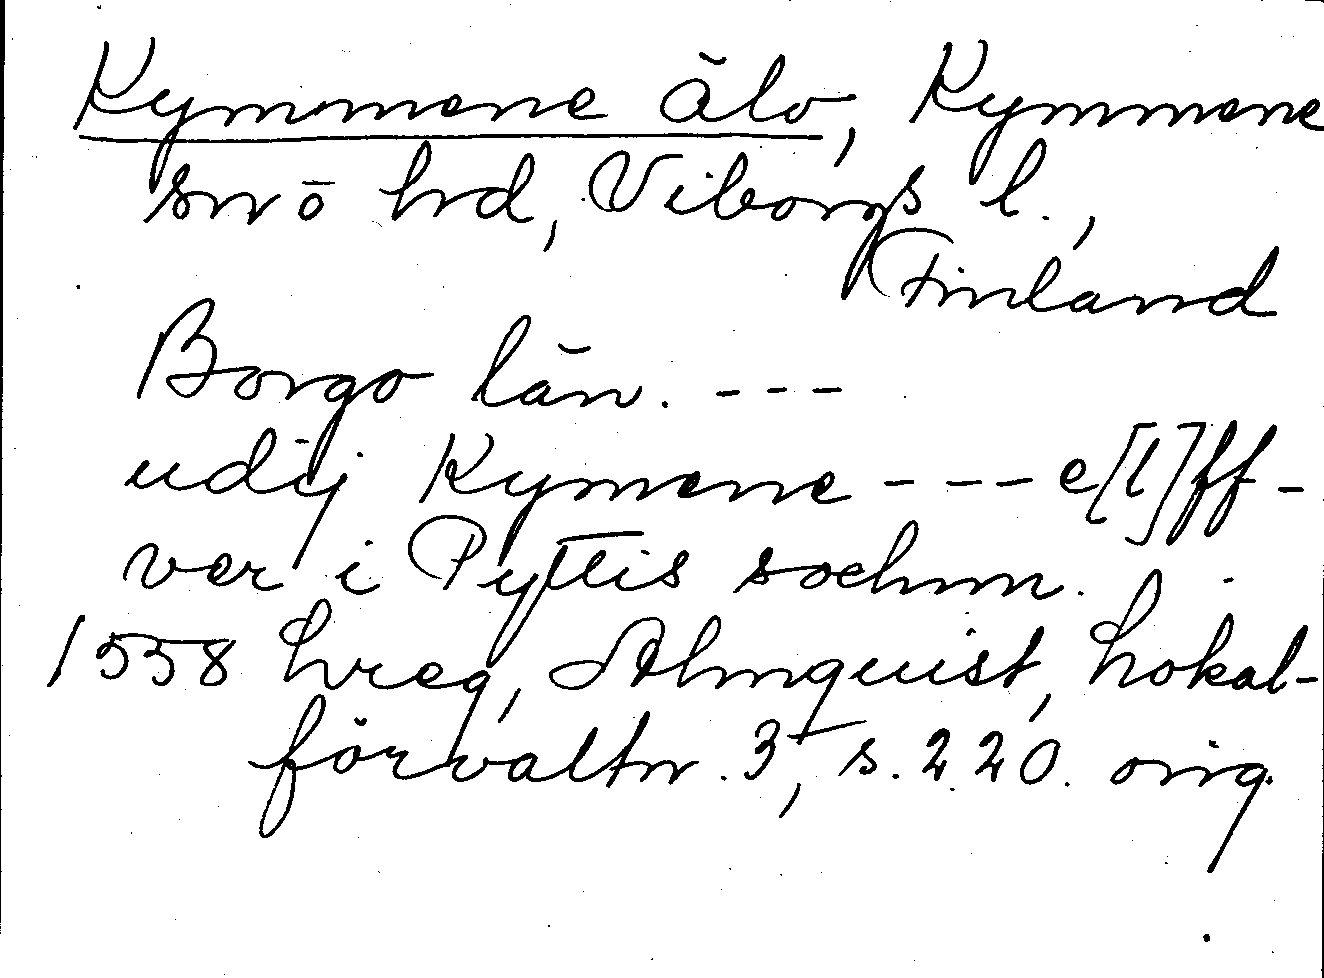 Kymmene älv, Kymmene
smö hd, Viborgs l.,
Finland
Borgo län. ---
udij Kymene --- e[l]ff-
ver i Pyttis sochnn.
1558 hreg, Almquist, Lokal-
förvaltn. 3, s. 220. orig.